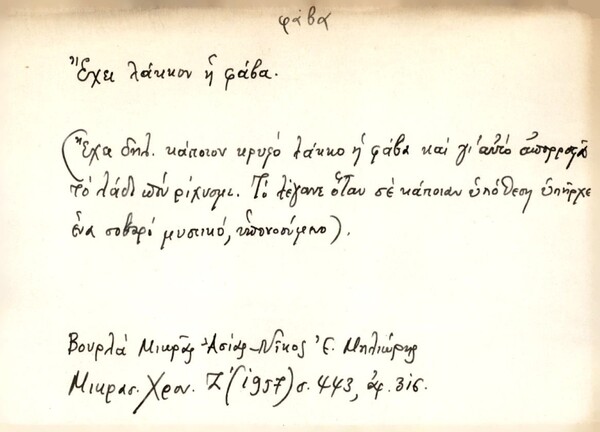 φάβα
Ἔχει λάκκον ἡ φάβα.
(Ἔχει δηλ. κάποιον κρυφό λάκκο ἡ φάβα καί γι' αὐτό ἀπορροφᾶ
τό λάδι πού ρίχνομε. Τό λέγανε ὅταν σέ κάποιαν ὑπόθεση ὑπῆρχε
ἕνα σοβαρό μυστικό, ὑπονοούμενο).
Βουρλά Μικρᾶς Ἀσίας - Νῖκος Ἐ. Μηλιώρης
Μικρασ. Χρον. Ζ' (1957) σ. 443, ἀρ. 316.